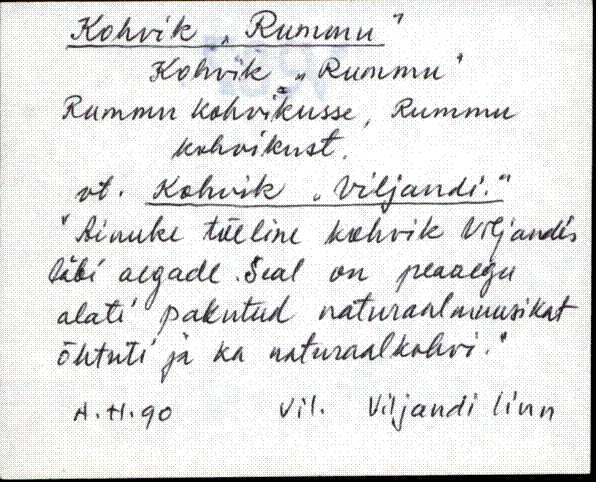 Kohvik „Rummu"
Kohvik „Rummu"
Rummu kohvikusse, Rummu
kohvikust.
vt. Kohvik „Viljandi."
"Ainuke tõeline kohvik Viljandis
läbi aegade. Seal on peaaegu
alati pakutud naturaalmuusikat
õhtuti ja ka naturaalkohvi."
A.H.90 Vil. Viljandi linn